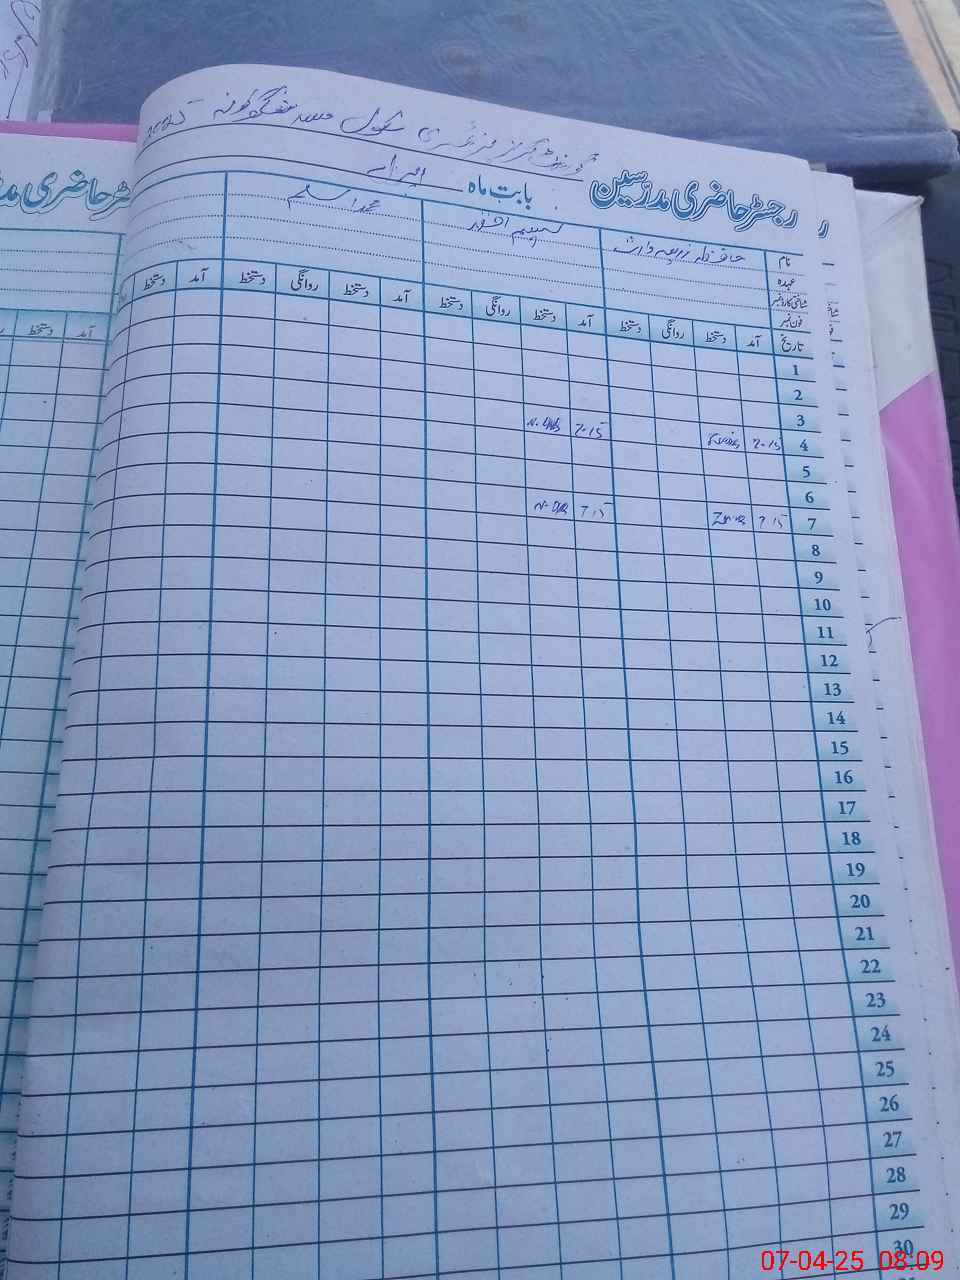 گورنمنٹ گرلز پرائمری سکول 2025
رجسٹر حاضری مدرسین بابت ماہ اپریل
نام حافظہ نسیم اختر محمد اسلم
عہدہ
شناختی کارڈ نمبر
فون نمبر
تاریخ آمد دستخط روانگی دستخط آمد دستخط روانگی دستخط آمد دستخط روانگی دستخط آمد دستخط
1
2
3
4 7.15 7.15
5
6
7 7.15 7.15
8
9
10
11
12
13
14
15
16
17
18
19
20
21
22
23
24
25
26
27
28
29
30
رجسٹر حاضری مد
آمد دستخط
07-04-25 08:09